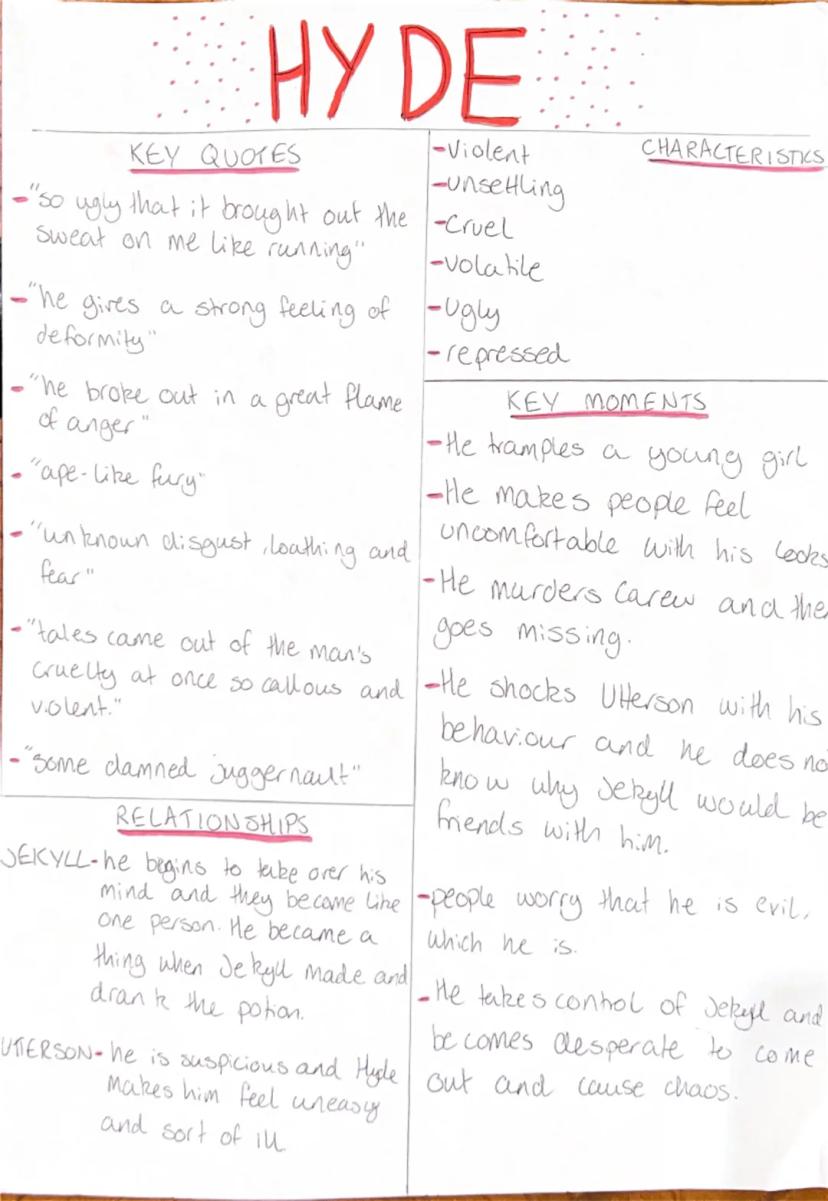 HYDE
KEY QUOTES
-"so ugly that it brought out the
sweat on me like running"
-"he gives a strong feeling of
deformity"
-"he broke out in a great flame
of anger"
-"ape-like fury"
-"unknown disgust, loathing and
fear"
-"tales came out of the man's
cruelty at once so callous and
violent."
-"some damned juggernaut"
RELATIONSHIPS
JEKYLL-he begins to take over his
mind and they become like
one person. He became a
thing when Jekyll made and
drank the potion.
UTTERSON-he is suspicious and Hyde
makes him feel uneasy
and sort of ill
CHARACTERISTICS
-Violent
-unsettling
-Cruel
-Volatile
-Ugly
-repressed
KEY MOMENTS
-He tramples a young girl
-He makes people feel
uncomfortable with his looks
-He murders Carew and the
goes missing.
-He shocks Utterson with his
behaviour and he does no
know why Jekyll would be
friends with him.
-people worry that he is evil,
which he is.
-He takes control of Jekyll and
becomes desperate to come
out and cause chaos.